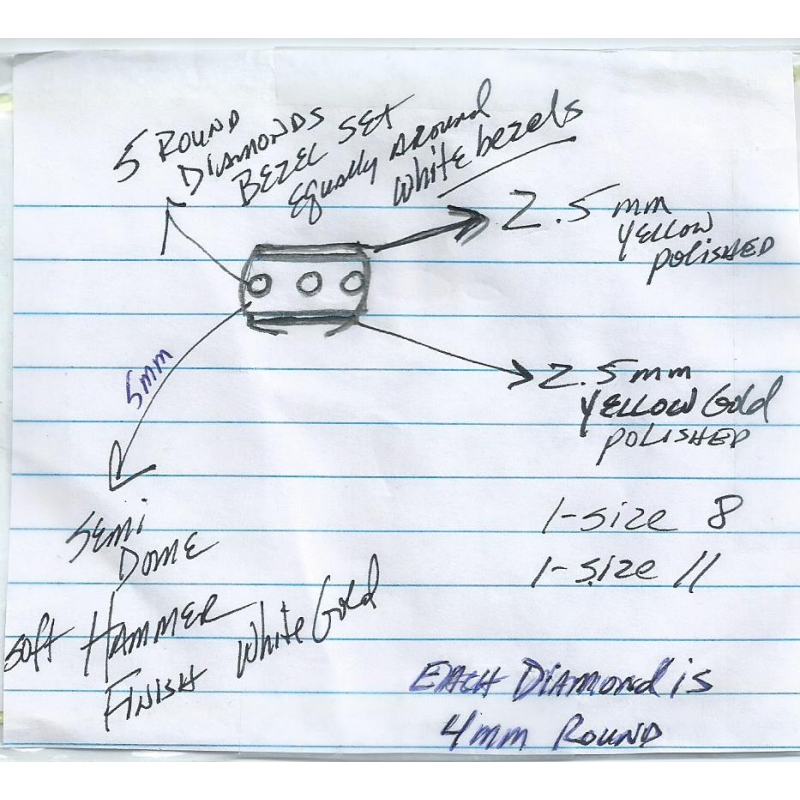 5 ROUND
DIAMONDS
BEZEL SET
EQUALLY AROUND
white bezels
2.5mm
YELLOW
POLISHED
5mm
2.5mm
YELLOW Gold
POLISHED
SEMI
DOME
soft HAMMER
FINISH White Gold
1-size 8
1-size 11
EACH DIAMOND is
4mm ROUND